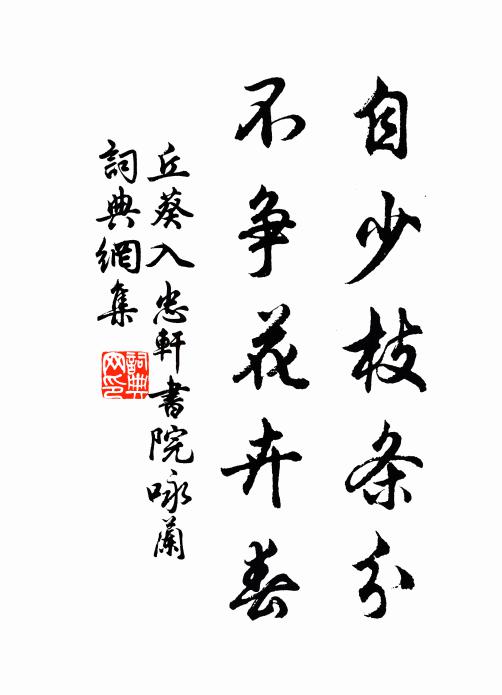 自少枝条分
不争花卉春
丘葵入忠軒書院咏蘭
詞典網集
詞典网印